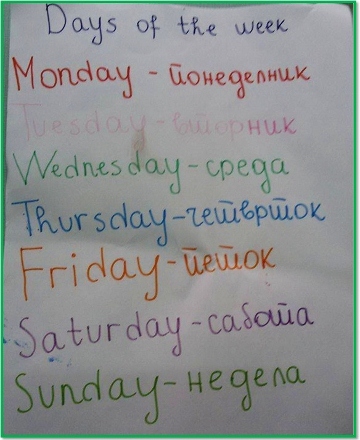 Days of the week
Monday - понеделник
Tuesday - вторник
Wednesday - среда
Thursday - четврток
Friday - петок
Saturday - сабота
Sunday - недела